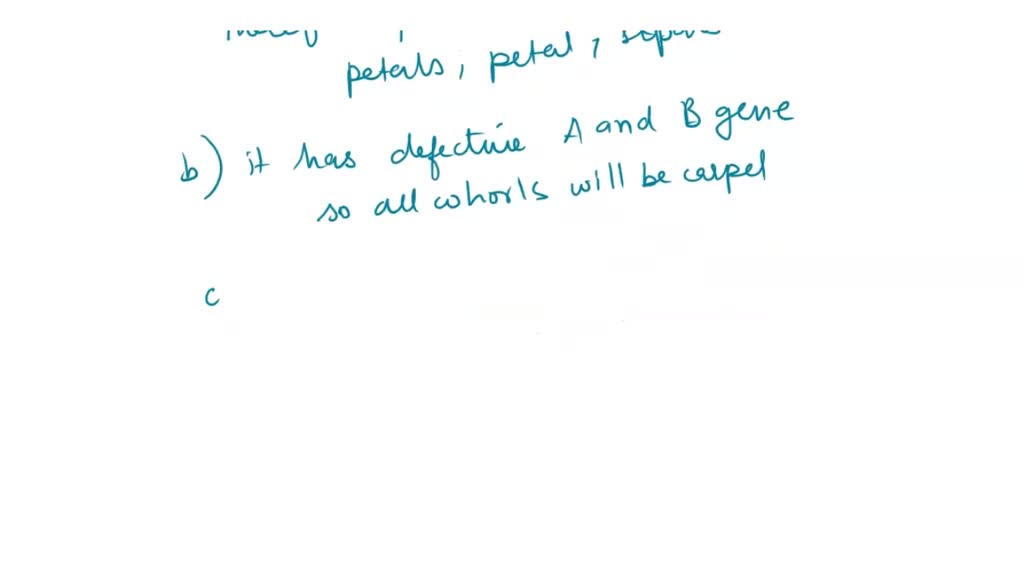 petals, petal,
b) it has defective A and B gene
so all whorls will be carpel
c